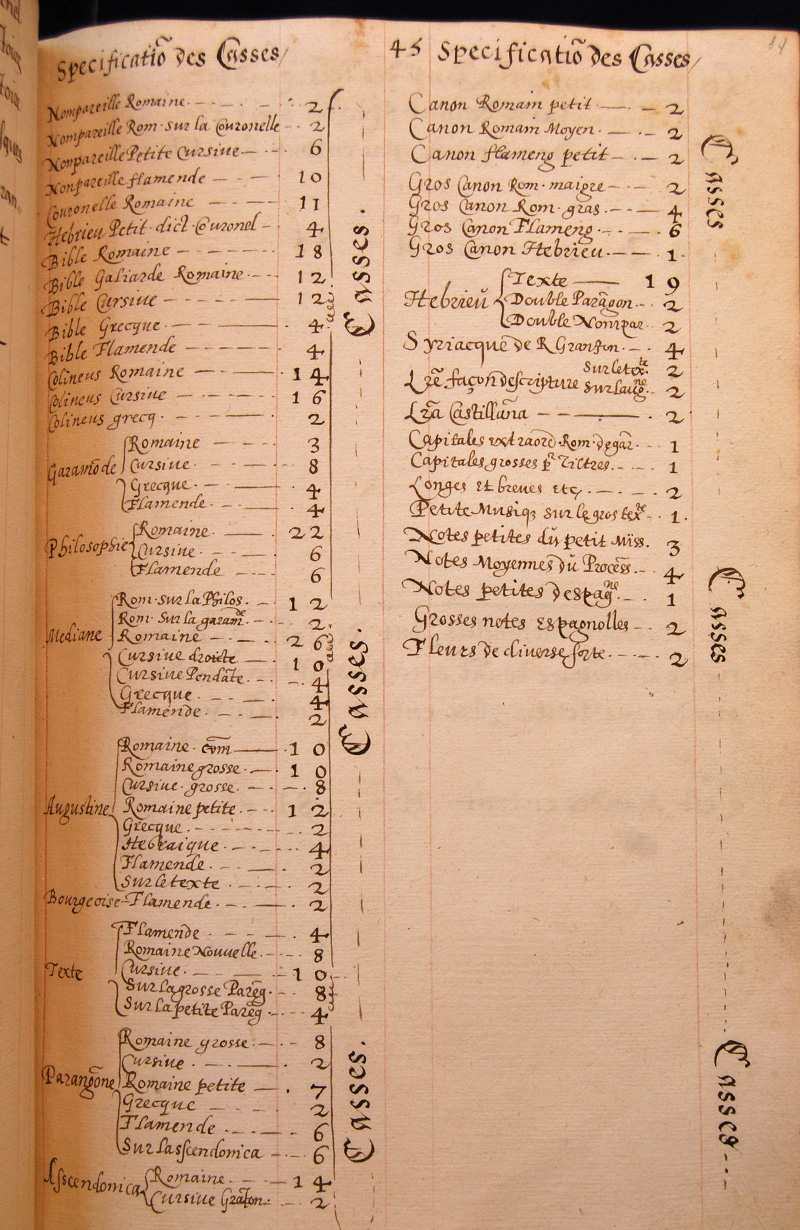 Specificatiõ des Casses
Nompareille Romaine 2
Nompareille Rom· sur la Couronelle 2
Nonpareille Petite Cursiue 6
Nonpareille flamende 10
Couronelle Romaine 11
Hebrieu Petit· dict Couronel 4
Bible Romaine 18
Bible Galiarde Romaine 12
Bible Cursiue 12
Bible Grecque 4
Bible Flamende 4
Colineus Romaine 14
Colineus Cursiue 16
Colineus grecq 2
Garamõde
Romaine 3
Cursiue 8
Grecque 4
Flamende 4
Philosophie
Romaine 22
Cursiue 6
Flamende 6
Mediane
Rom· Sur la Philos. 12
Rom· Sur la garam 2
Romaine 26
Cursiue droicte 10
Cursiue Pendãte 4
Grecque 4
Flamende 2
Augustine
Romaine · cõm 10
Romaine grosse 10
Cursiue· grosse 8
Romaine petite 12
Grecque 2
Hebraique 4
Flamende 2
Sur le texte 2
Bourgeoise Flamende 2
Texte
Flamende 4
Romaine Nouuelle 8
Cursiue 10
Sur la grosse Parãg 8
Sur la petite Parãg 4
Parangõne
Romaine grosse 8
Cursiue 2
Romaine petite 7
Grecque 2
Flamende 6
Sur lascendonica 6
Asscendonica
Romaine 14
Cursiue Grãjon 2
Casses.
Casses.
Casses.
45 Specificatiõ des Casses
Canon Romain petit 2
Canon Romain Moyen 2
Canon flameng petit 2
Gros Canon Rom· maigre 2
Gros Canon Rom· gras 4
Gros Canon Flameng 6
Gros Canon Hebrieu 1
Hebrieũ
Texte 19
Double Parãgon 2
Double Nompar 2
Syriacque de R Granjon 4
Lrẽ façon descripture
Sur le tex 2
Sur laug 2
Lrã Castillana 2
Capitales extraord Rom· de gar 1
Capitales grosses pr Tictres 1
Longes et breues etc 2
Petite Musiq sur le gros tex 1
Notes petites dũ petit Miss. 3
Notes Moyennes dũ Procẽss 4
Notes petites despag 1
Grosses notes espagnolles 2
Fleurs de diuerse sorte 2
Casses
Casses
Casses